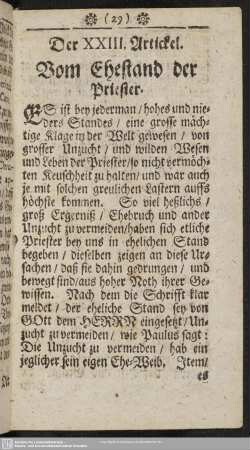 (29)
Der XXIII. Artickel.
Vom Ehestand der
Priester.
ES ist bey jederman / hohes und nie-
ders Standes / eine grosse mäch-
tige Klage in der Welt gewesen / von
grosser Unzucht / und wilden Wesen
und Leben der Priester / so nicht vermöch-
ten Keuschheit zu halten / und war auch
je mit solchen greulichen Lastern auffs
höchste kommen. So viel heßlichs /
groß Ergerniß / Ehebruch und ander
Unzucht zu vermeiden / haben sich etliche
Priester bey uns in ehelichen Stand
begeben / dieselben zeigen an diese Ur-
sachen / daß sie dahin gedrungen / und
bewegt sind / aus hoher Noth ihrer Ge-
wissen. Nach dem die Schrifft klar
meldet / der eheliche Stand sey von
GOtt dem HERRN eingesetzt / Un-
zucht zu vermeiden / wie Paulus sagt:
Die Unzucht zu vermeiden / hab ein
jeglicher sein eigen Ehe-Weib. Item /
es